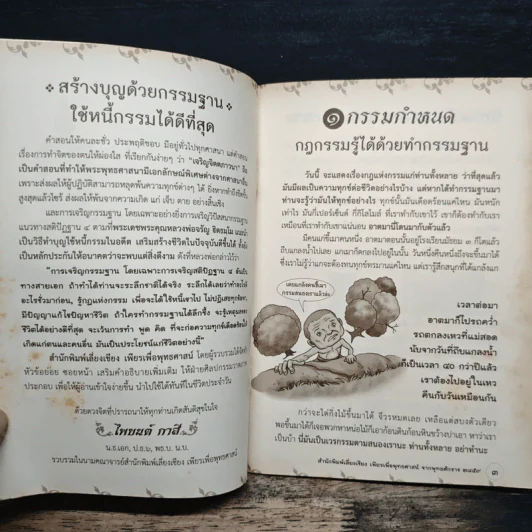 สร้างบุญด้วยกรรมฐาน
ใช้หนี้กรรมได้ดีที่สุด
คำสอนให้คนละชั่ว ประพฤติชอบ มีอยู่ทั่วไปทุกศาสนา แต่คำสอน
เรื่องการทำจิตของตนให้ผ่องใส ที่เรียกกันง่ายๆ ว่า “เจริญจิตตภาวนา”
เป็นคำสอนที่ทำให้พระพุทธศาสนามีเอกลักษณ์พิเศษต่างจากศาสนาอื่น
เพราะส่งผลให้ผู้ปฏิบัติสามารถหลุดพ้นความทุกข์ต่างๆ ได้
สูงสุดแล้วไซร้ ส่งผลให้พ้นจากความเกิด แก่ เจ็บ ตาย อย่างสิ้นเชิง
และการเจริญกรรมฐาน โดยเฉพาะอย่างยิ่งการเจริญวิปัสสนากรรมฐาน
แนวทางสติปัฏฐาน ๔ ตามที่พระเดชพระคุณหลวงพ่อจรัญ ฐิตธมฺโม
เป็นวิธีทำบุญใช้หนี้กรรมในอดีต เสริมสร้างชีวิตในปัจจุบันดีขึ้นได้
เป็นหลักประกันให้อนาคตว่าจะพบแต่สิ่งดีงาม ดังที่หลวงพ่อกล่าวไว้ว่า
“การเจริญกรรมฐาน โดยเฉพาะการเจริญสติปัฏฐาน ๔ อันเป็น
ทางสายเอก ถ้าทำได้ท่านจะระลึกชาติได้จริง ระลึกได้เลยว่าทำ
อะไรชั่วมาก่อน รู้กฎแห่งกรรม เพื่อจะได้ใช้หนี้เขาไป ไม่ปฏิเสธทุกข้อหา
มีปัญญาแก้ไขปัญหาชีวิต ถ้าใครทำกรรมฐานได้ลึกซึ้ง จะรู้เหตุผลของ
ชีวิตได้อย่างดีที่สุด จะเว้นการทำ พูด คิด ที่จะก่อความทุกข์เดือดร้อน
เกิดแก่ตนและคนอื่น มันเป็นประโยชน์แก่ชีวิตอย่างนี้”
สำนักพิมพ์เลี่ยงเชียง เพียรเพื่อพุทธศาสน์ โดยผู้รวบรวมได้จัดทำ
หัวข้อย่อย ซอยหน้า เสริมคำอธิบายเพิ่มเติม ให้ฝ่ายศิลปกรรมวาดภาพ
ประกอบ เพื่อให้ผู้อ่านเข้าใจง่ายขึ้น นำไปใช้ได้ทันในชีวิตประจำวัน
ด้วยดวงจิตที่ปรารถนาให้ทุกท่านเกิดสันติสุขในใจ
ไพยนต์ กาสี
น.ธ.เอก, ป.ธ.๖, พธ.บ. น.บ.
รวบรวมในนามคณาจารย์สำนักพิมพ์เลี่ยงเชียง เพียรเพื่อพุทธศาสน์
๑ กรรมกำหนด
กฎกรรมรู้ได้ด้วยทำกรรมฐาน
วันนี้ จะแสดงเรื่องกฎแห่งกรรมแก่ท่านทั้งหลาย ว่าที่สุดแล้ว
มันมีผลเป็นความทุกข์ต่อชีวิตอย่างไรบ้าง แต่หากได้ทำกรรมฐานมา
ท่านจะรู้ว่ามันให้ทุกข์อย่างไร ทุกข์นั้นมันเดือดร้อนแค่ไหน มันหนัก
เท่าไร มันกี่เปอร์เซ็นต์ กี่กิโลไมล์ ที่เราทำกับเขาไว้ เราก็ต้องทำกับเรา
เหมือนที่เราทำกับเขาแน่นอน อาตมามีโดนมากับตัวแล้ว
มีคนแก่ขี้เมาคนหนึ่ง อาตมาตอนนั้นอยู่โรงเรียนมัธยม ๓ ก็โตแล้ว
ถีบแกลงน้ำไปเลย แกเมาก็ตกลงไปอยู่ในน้ำ วันหนึ่งคืนหนึ่งถึงจะขึ้นมาได้
ซึ่งเราไม่รู้ว่าแกจะต้องทนทุกข์ทรมานแค่ไหน แต่เรารู้สึกสนุกที่ได้แกล้งแก
เดชะแกล้งขี้เมา
กรรมสนองเขาแล้วล่ะ
เวลาต่อมา
อาตมาก็ไปรถคว่ำ
รถตกลงเหวที่แม่สอด
นับจากวันที่ถีบแกลงน้ำ
ก็เป็นเวลา ๔๐ กว่าปีแล้ว
เราต้องไปอยู่ในเหว
คืนกับวันเหมือนกัน
กว่าจะไต่กิ่งไม้ขึ้นมาได้ จีวรหมดเลย เหลือแต่สบงตัวเดียว
พอขึ้นมาได้ก็เจอพวกทาหน่อไม้ก็เอาก้อนดินก้อนหินขว้างปาเอา หาว่าเรา
เป็นบ้า นี่มันเป็นเวรกรรมตามสนองเรานะ ท่านทั้งหลาย อย่าทำนะ
สำนักพิมพ์เลี่ยงเชียง เพียรเพื่อพุทธศาสน์ จากพุทธศักราช ๒๔๕๙
๓